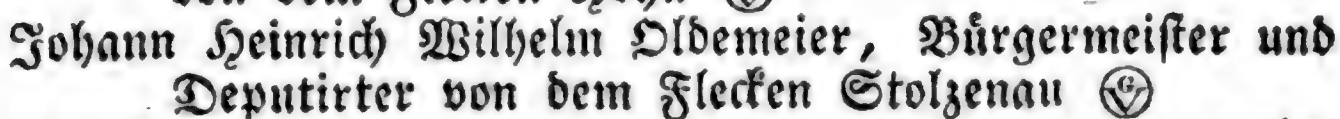 Johann Heinrich Wilhelm Oldemeier, Bürgermeister und
Deputirter von dem Flecken Stolzenau